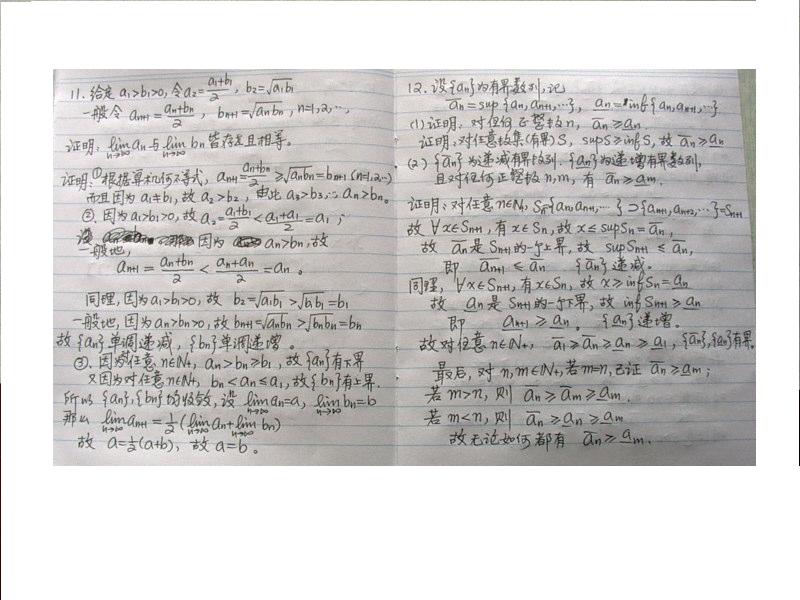 11. 给定 a₁>b₁>0, 令 a₂=(a₁+b₁)/2, b₂=√(a₁b₁)
一般令 aₙ₊₁=(aₙ+bₙ)/2, bₙ₊₁=√(aₙbₙ), n=1,2,…,
证明: lim(n→∞) aₙ 与 lim(n→∞) bₙ 皆存在且相等。
证明: ①根据算术几何不等式, aₙ₊₁=(aₙ+bₙ)/2 ≥ √(aₙbₙ)=bₙ₊₁ (n=1,2,…)
而且因为 a₁≠b₁, 故 a₂>b₂, 由此 a₃>b₃,∴ aₙ>bₙ。
②. 因为 a₁>b₁>0, 故 a₂=(a₁+b₁)/2<(a₁+a₁)/2=a₁;
一般地, 因为 aₙ>bₙ, 故
aₙ₊₁=(aₙ+bₙ)/2<(aₙ+aₙ)/2=aₙ。
同理, 因为 a₁>b₁>0, 故 b₂=√(a₁b₁)>√(b₁b₁)=b₁
一般地, 因为 aₙ>bₙ>0, 故 bₙ₊₁=√(aₙbₙ)>√(bₙbₙ)=bₙ
故 {aₙ} 单调递减, {bₙ} 单调递增。
③. 因为任意 n∈N₊, aₙ>bₙ≥b₁, 故 {aₙ} 有下界
又因为对任意 n∈N₊, bₙ<aₙ≤a₁, 故 {bₙ} 有上界.
所以 {aₙ}, {bₙ} 均收敛, 设 lim(n→∞) aₙ=a, lim(n→∞) bₙ=b
那么 lim(n→∞) aₙ₊₁=½(lim(n→∞) aₙ+lim(n→∞) bₙ)
故 a=½(a+b), 故 a=b。
12. 设 {aₙ} 为有界数列, 记
a̅ₙ=sup{aₙ,aₙ₊₁,…}, a̲ₙ=inf{aₙ,aₙ₊₁,…}
(1) 证明: 对任何正整数 n, a̅ₙ≥a̲ₙ
证明: 对任意数集(有界) S, supS≥infS, 故 a̅ₙ≥a̲ₙ
(2) {a̅ₙ} 为递减有界数列, {a̲ₙ} 为递增有界数列,
且对任何正整数 n,m, 有 a̅ₙ≥a̲ₘ.
证明: 对任意 n∈N₊, Sₙ={aₙ,aₙ₊₁,…}⊃{aₙ₊₁,aₙ₊₂,…}=Sₙ₊₁
故 ∀x∈Sₙ₊₁, 有 x∈Sₙ, 故 x≤supSₙ=a̅ₙ,
故 a̅ₙ 是 Sₙ₊₁ 的一个上界, 故 supSₙ₊₁≤a̅ₙ,
即 a̅ₙ₊₁≤a̅ₙ {a̅ₙ} 递减.
同理, ∀x∈Sₙ₊₁, 有 x∈Sₙ, 故 x≥infSₙ=a̲ₙ
故 a̲ₙ 是 Sₙ₊₁ 的一个下界, 故 infSₙ₊₁≥a̲ₙ
即 a̲ₙ₊₁≥a̲ₙ. {a̲ₙ} 递增.
故对任意 n∈N₊, a̅₁≥a̅ₙ≥a̲ₙ≥a̲₁, {a̅ₙ},{a̲ₙ} 有界.
最后, 对 n,m∈N₊, 若 m=n, 已证 a̅ₙ≥a̲ₘ;
若 m>n, 则 a̅ₙ≥a̅ₘ≥a̲ₘ.
若 m<n, 则 a̅ₙ≥a̲ₙ≥a̲ₘ
故无论如何都有 a̅ₙ≥a̲ₘ.